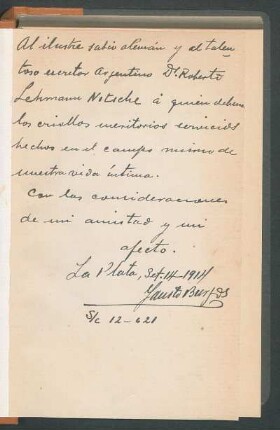 Al ilustre sabio alemán y al talen
toso escritor Argentino Dr. Roberto
Lehmann Nitsche á quien deben
los criollos meritorios servicios
hechos en el campo mismo de
nuestra vida íntima.
Con las consideraciones
de mi amistad y mi
afecto.
La Plata, Set. 14-1914
Fausto
S/c 12-621